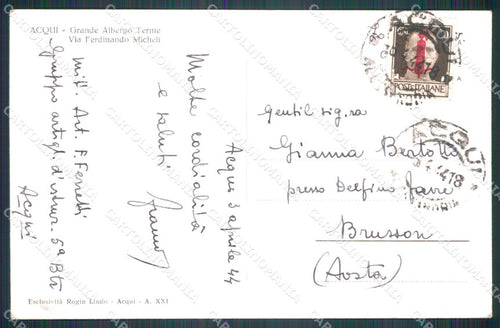 ACQUI - Grande Albergo Terme
Via Ferdinando Micheli
Acqui 3 aprile 44
Molte cordialità
e saluti
Mitt. Art. F. Ferretti
Gruppo artigl. d'istruz. 5ª Btr
Acqui
Esclusività Rogin Lindo - Acqui - A. XXI
POSTE ITALIANE
ACQUI
Gentil sig.ra
Gianna Bertotto
presso Delfino Favre
Brusson
(Aosta)
CARTOLINOMANIA